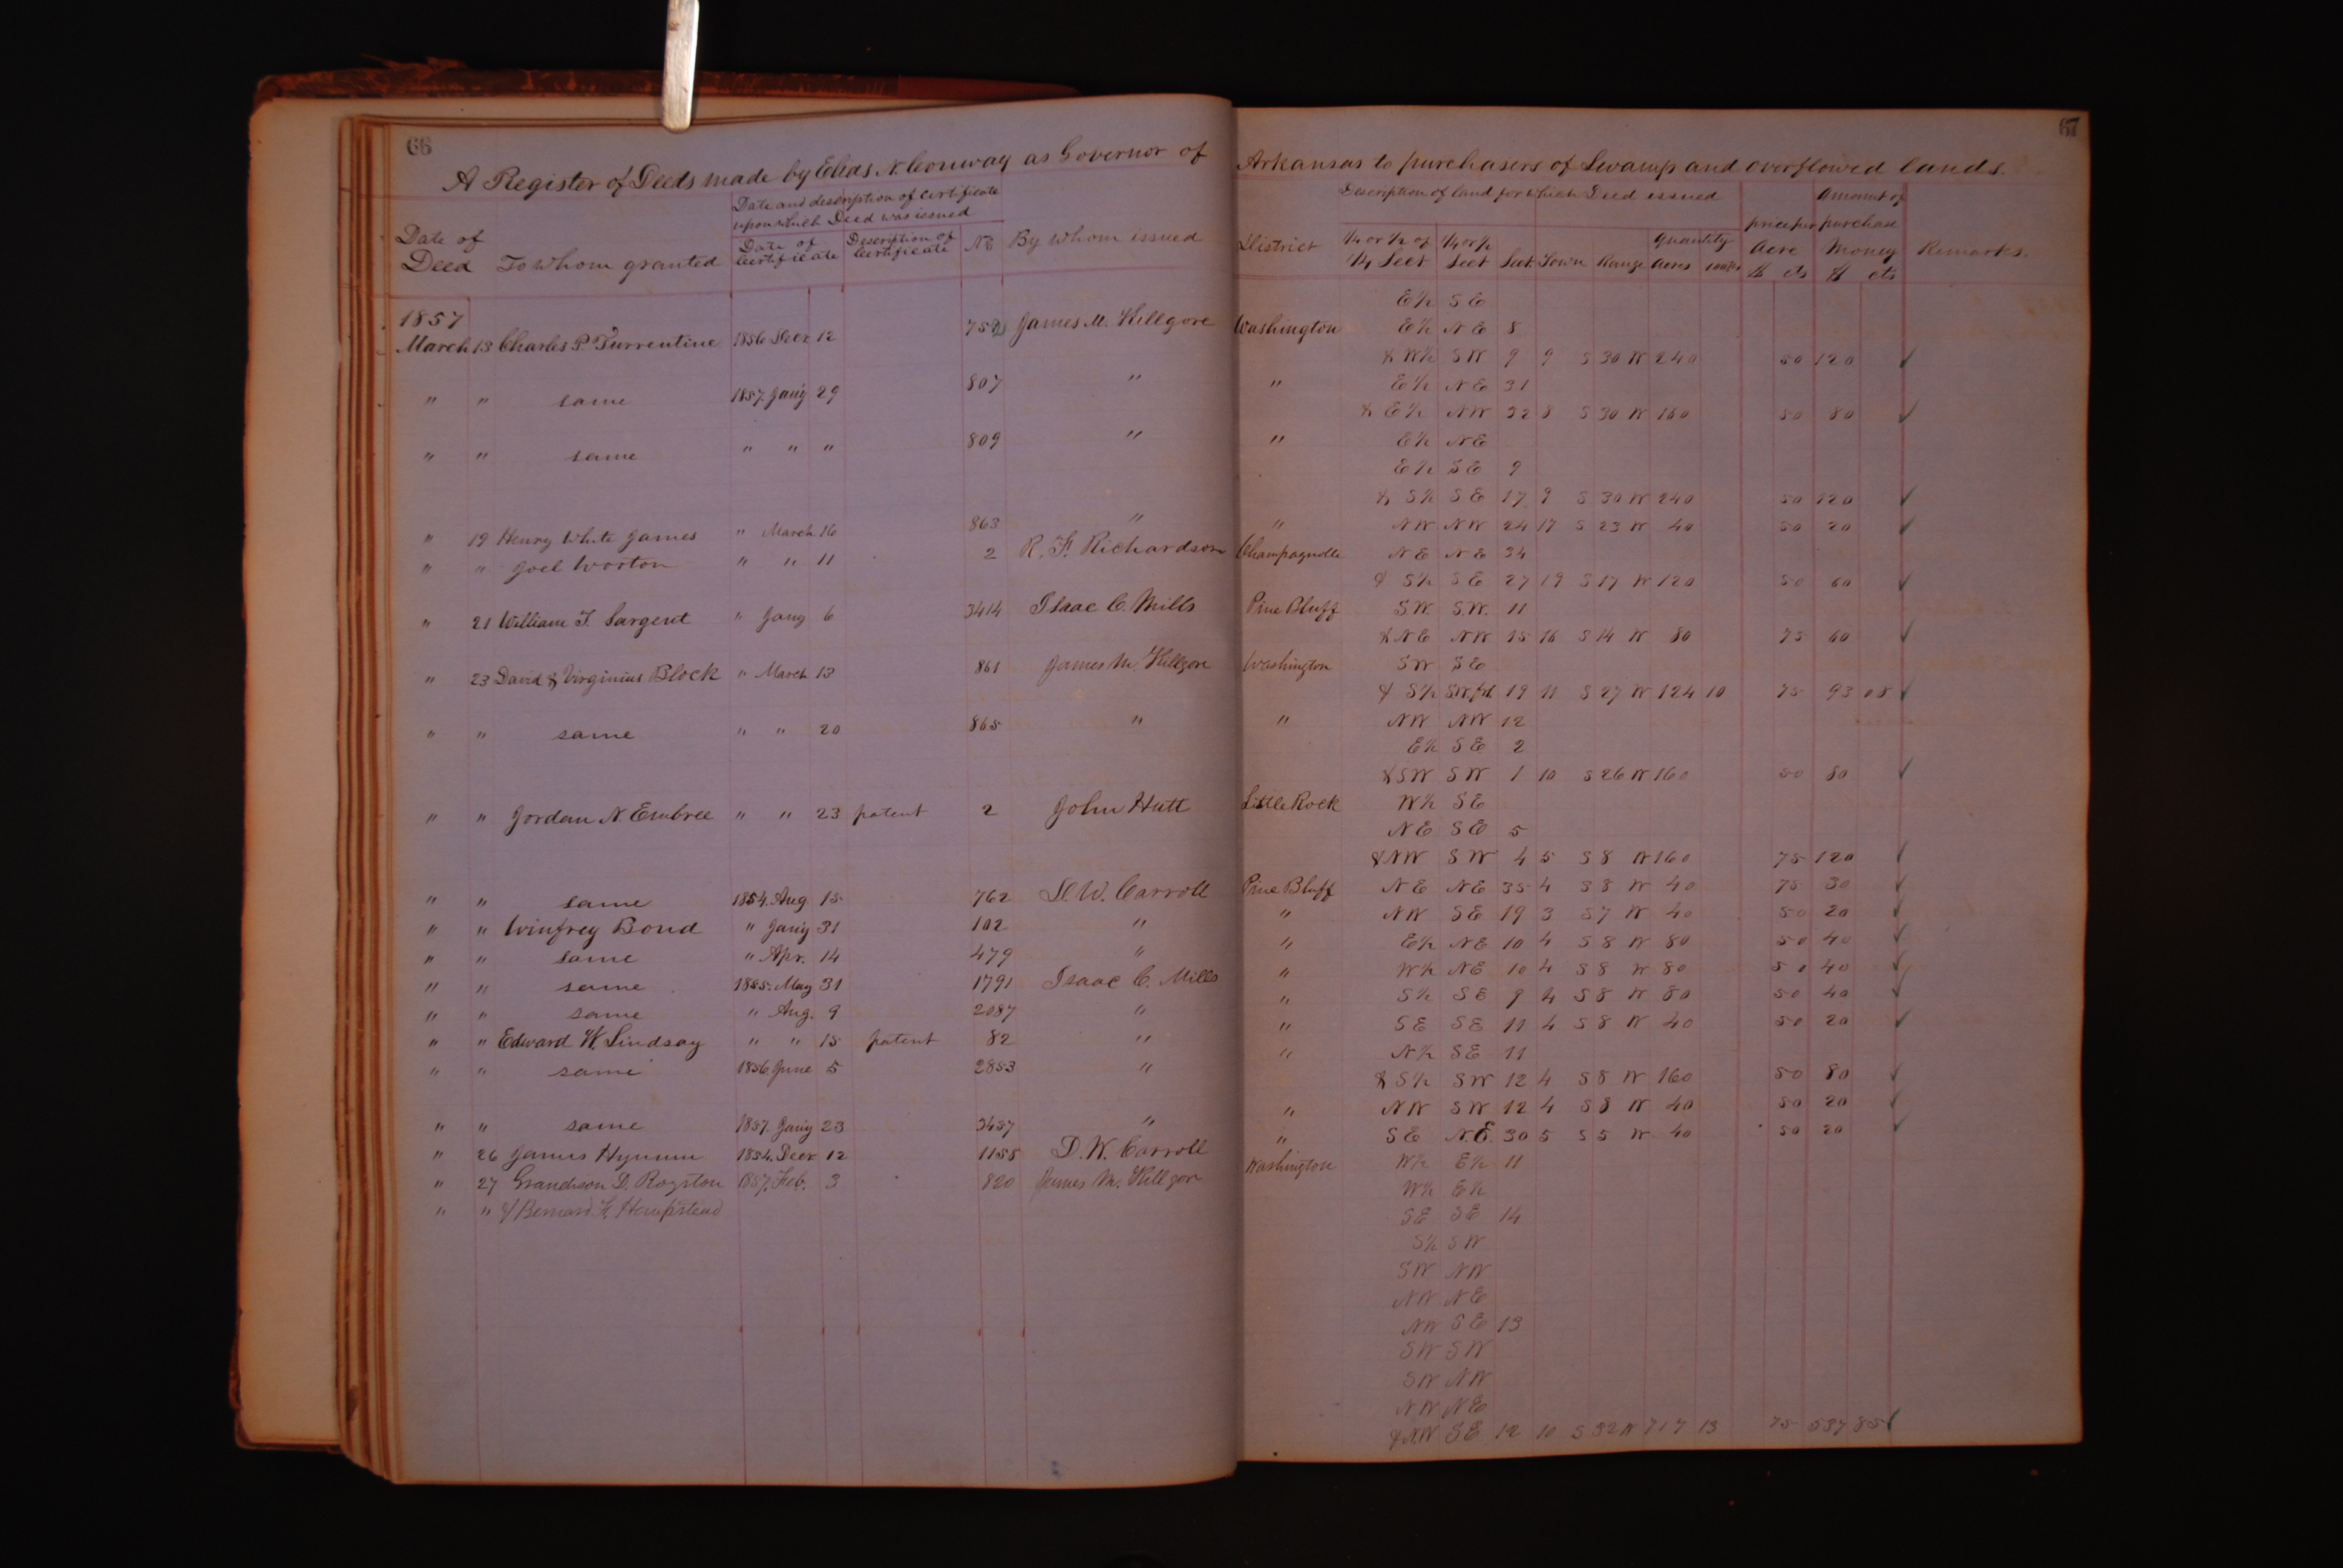 66
A Register of Deeds made by Elias N. Conway as Governor of
Date and description of certificate
upon which Deed was issued
Date of
Deed
To whom granted
Date of
Certificate
Description of
Certificate
No
By whom issued
1857
March 13 Charles P. Turrentine 1856 Decr 12 759 James M. Killgore
" " same 1857 Jany 29 807 "
" " same " " " 809 "
" 19 Henry White James " March 16 863 "
" " Joel Worton " " 11 2 R. F. Richardson
" 21 William T. Sargent " Jany 6 3414 Isaac C. Mills
" 23 David & Virginius Block " March 13 861 James M. Killgore
" " same " " 20 865 "
" " Jordan N. Embree " " 23 patent 2 John Hutt
" " same 1854. Aug 15 762 D. W. Carroll
" " Winfrey Bond " Jany 31 102 "
" " same " Apr. 14 479 "
" " same 1855. May 31 1791 Isaac C. Mills
" " same " Aug. 9 2087 "
" " Edward W. Lindsay " " 15 patent 82 "
" " same 1856. June 5 2853 "
" " same 1857. Jany 23 3457 "
" 26 James Hynum 1854. Decr 12 1155 D. W. Carroll
" 27 Grandison D. Royston 1857. Feb. 3 820 James M. Killgore
" " & Bernard F. Hempstead
67
Arkansas to purchasers of Swamp and overflowed lands.
Description of land for which Deed issued
District
1/4 or 1/2 of
1/4 Sect
1/4 or 1/2
Sect
Sect. Town Range
Quantity
Acres 100ths
price per
Acre
$ cts
Amount of
purchase
Money
$ cts
Remarks.
E1/2 S E
Washington E1/2 N E 8
& W1/2 S W 9 9 S 30 W 240 50 120 ✓
" E1/2 N E 31
& E1/2 N W 32 8 S 30 W 160 50 80 ✓
" E1/2 N E
E1/2 S E 9
& S1/2 S E 17 9 S 30 W 240 50 120 ✓
" N W N W 24 17 S 23 W 40 50 20 ✓
Champagnolle N E N E 34
& S1/2 S E 27 19 S 17 W 120 50 60 ✓
Pine Bluff S.W. S.W. 11
& N E N W 15 16 S 14 W 80 75 60 ✓
Washington S W S E
& S1/2 S W. frl 19 11 S 27 W 124 10 75 93 08 ✓
" N W N W 12
E1/2 S E 2
& S W S W 1 10 S 26 W 160 50 80 ✓
Little Rock W1/2 S E
N E S E 5
& N W S W 4 5 S 8 W 160 75 120 ✓
Pine Bluff N E N E 35 4 S 8 W 40 75 30 ✓
" N W S E 19 3 S 7 W 40 50 20 ✓
" E1/2 N E 10 4 S 8 W 80 50 40 ✓
" W1/2 N E 10 4 S 8 W 80 50 40 ✓
" S1/2 S E 9 4 S 8 W 80 50 40 ✓
" S E S E 11 4 S 8 W 40 50 20 ✓
" N1/2 S E 11
& S1/2 S W 12 4 S 8 W 160 50 80 ✓
" N W S W 12 4 S 8 W 40 50 20 ✓
" S E N. E. 30 5 S 5 W 40 50 20 ✓
Washington W1/2 E1/2 11
W1/2 E1/2
S E S E 14
S1/2 S W
S W N W
N W N E
N W S E 13
S W S W
S W N W
N W N E
& N.W S E 12 10 S 32 W 717 13 75 537 85 ✓